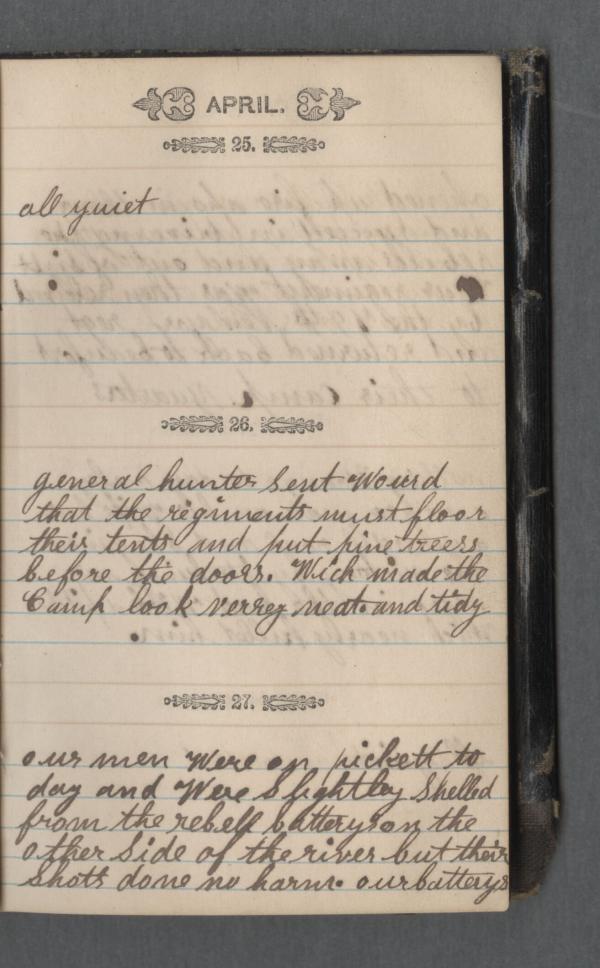 APRIL.
25.
all quiet
26.
general hunter Sent Wourd
that the regiments must floor
their tents and put pine trees
before the doors. Wich made the
Camp look verrey neat and tidy
27.
our men Were on pickett to
day and Were Slightley Shelled
from the rebell batterys on the
other Side of the river but their
Shots done no harm. our batterys